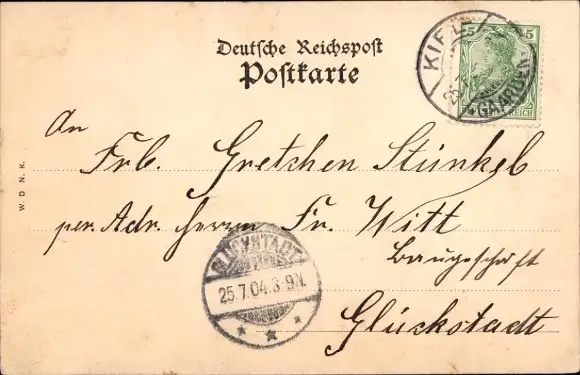 Deutsche Reichspost
Postkarte
5 5
KIEL
GAARDEN
REICH
An
Frl. Gretchen Stünkel
per. Adr. Herrn Fr. Witt
Baugeschäft
Glückstadt
GLÜCKSTADT
25.7.04.8-9N.
W. D. N. K.